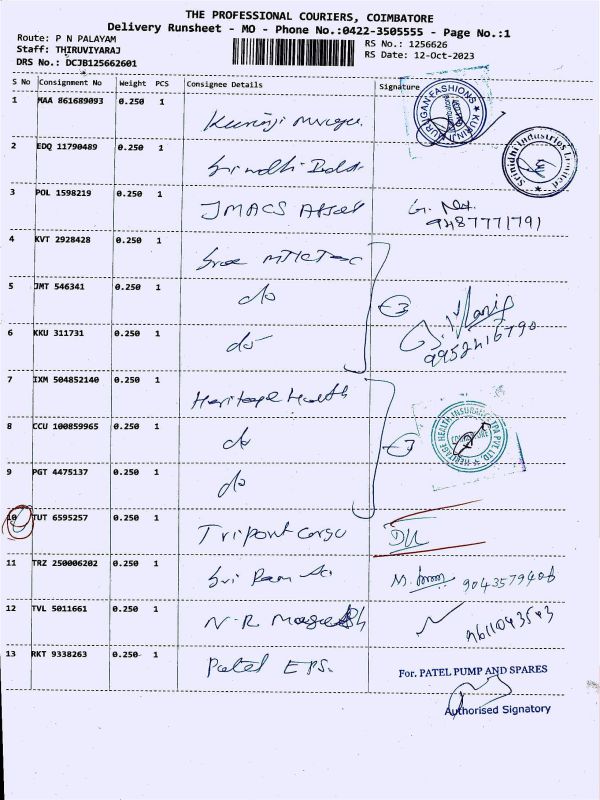 THE PROFESSIONAL COURIERS, COIMBATORE
Delivery Runsheet - MO - Phone No.:0422-3505555 - Page No.:1
Route: P N PALAYAM
Staff: THIRUVIYARAJ
DRS No.: DCJB125662601
RS No.: 1256626
RS Date: 12-Oct-2023
S No Consignment No Weight PCS Consignee Details Signature
1 MAA 861689093 0.250 1
KURINJI MURUGAN FASHIONS
2 EDQ 11790489 0.250 1
Srinidhi Industries Limited
3 POL 1598219 0.250 1 JMACS
9487771791
4 KVT 2928428 0.250 1 Sree
5 JMT 546341 0.250 1 do
6 KKU 311731 0.250 1 do
9952416790
7 IXM 504852140 0.250 1 Heritage Health
8 CCU 100859965 0.250 1 do
HERITAGE HEALTH INSURANCE TPA PVT. LTD.
9 PGT 4475137 0.250 1 do
10 TUT 6595257 0.250 1 Tripont Cargo
11 TRZ 250006202 0.250 1 Sri Ram
12 TVL 5011661 0.250 1 N.R
13 RKT 9338263 0.250 1 Patel EPS.
For. PATEL PUMP AND SPARES
Authorised Signatory